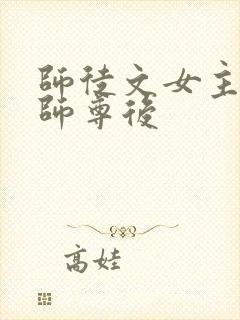 師徒文女主
師尊後
高娃